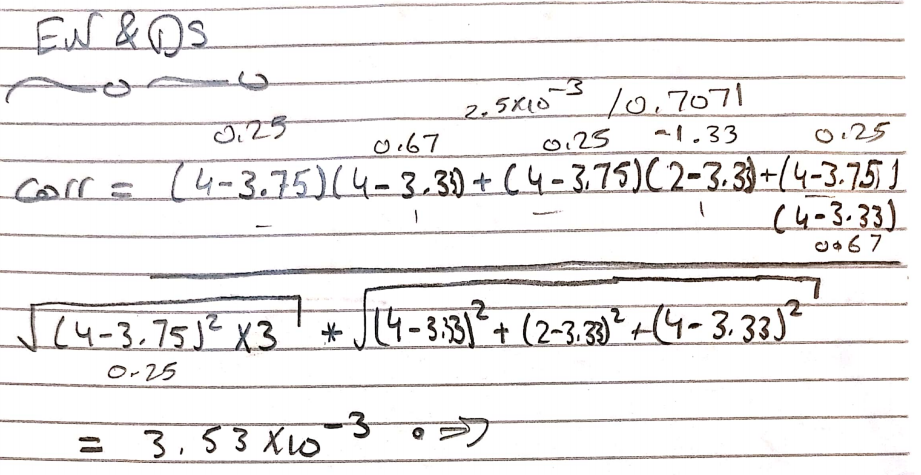 EW & DS
2.5x10⁻³ /0.7071
0.25 0.67 0.25 -1.33 0.25
Corr = (4-3.75)(4-3.33) + (4-3.75)(2-3.33)+(4-3.75)
(4-3.33)
0.67
√(4-3.75)² x3 * √(4-3.33)² + (2-3.33)² + (4-3.33)²
0.25
= 3.53 x10⁻³ ⇒